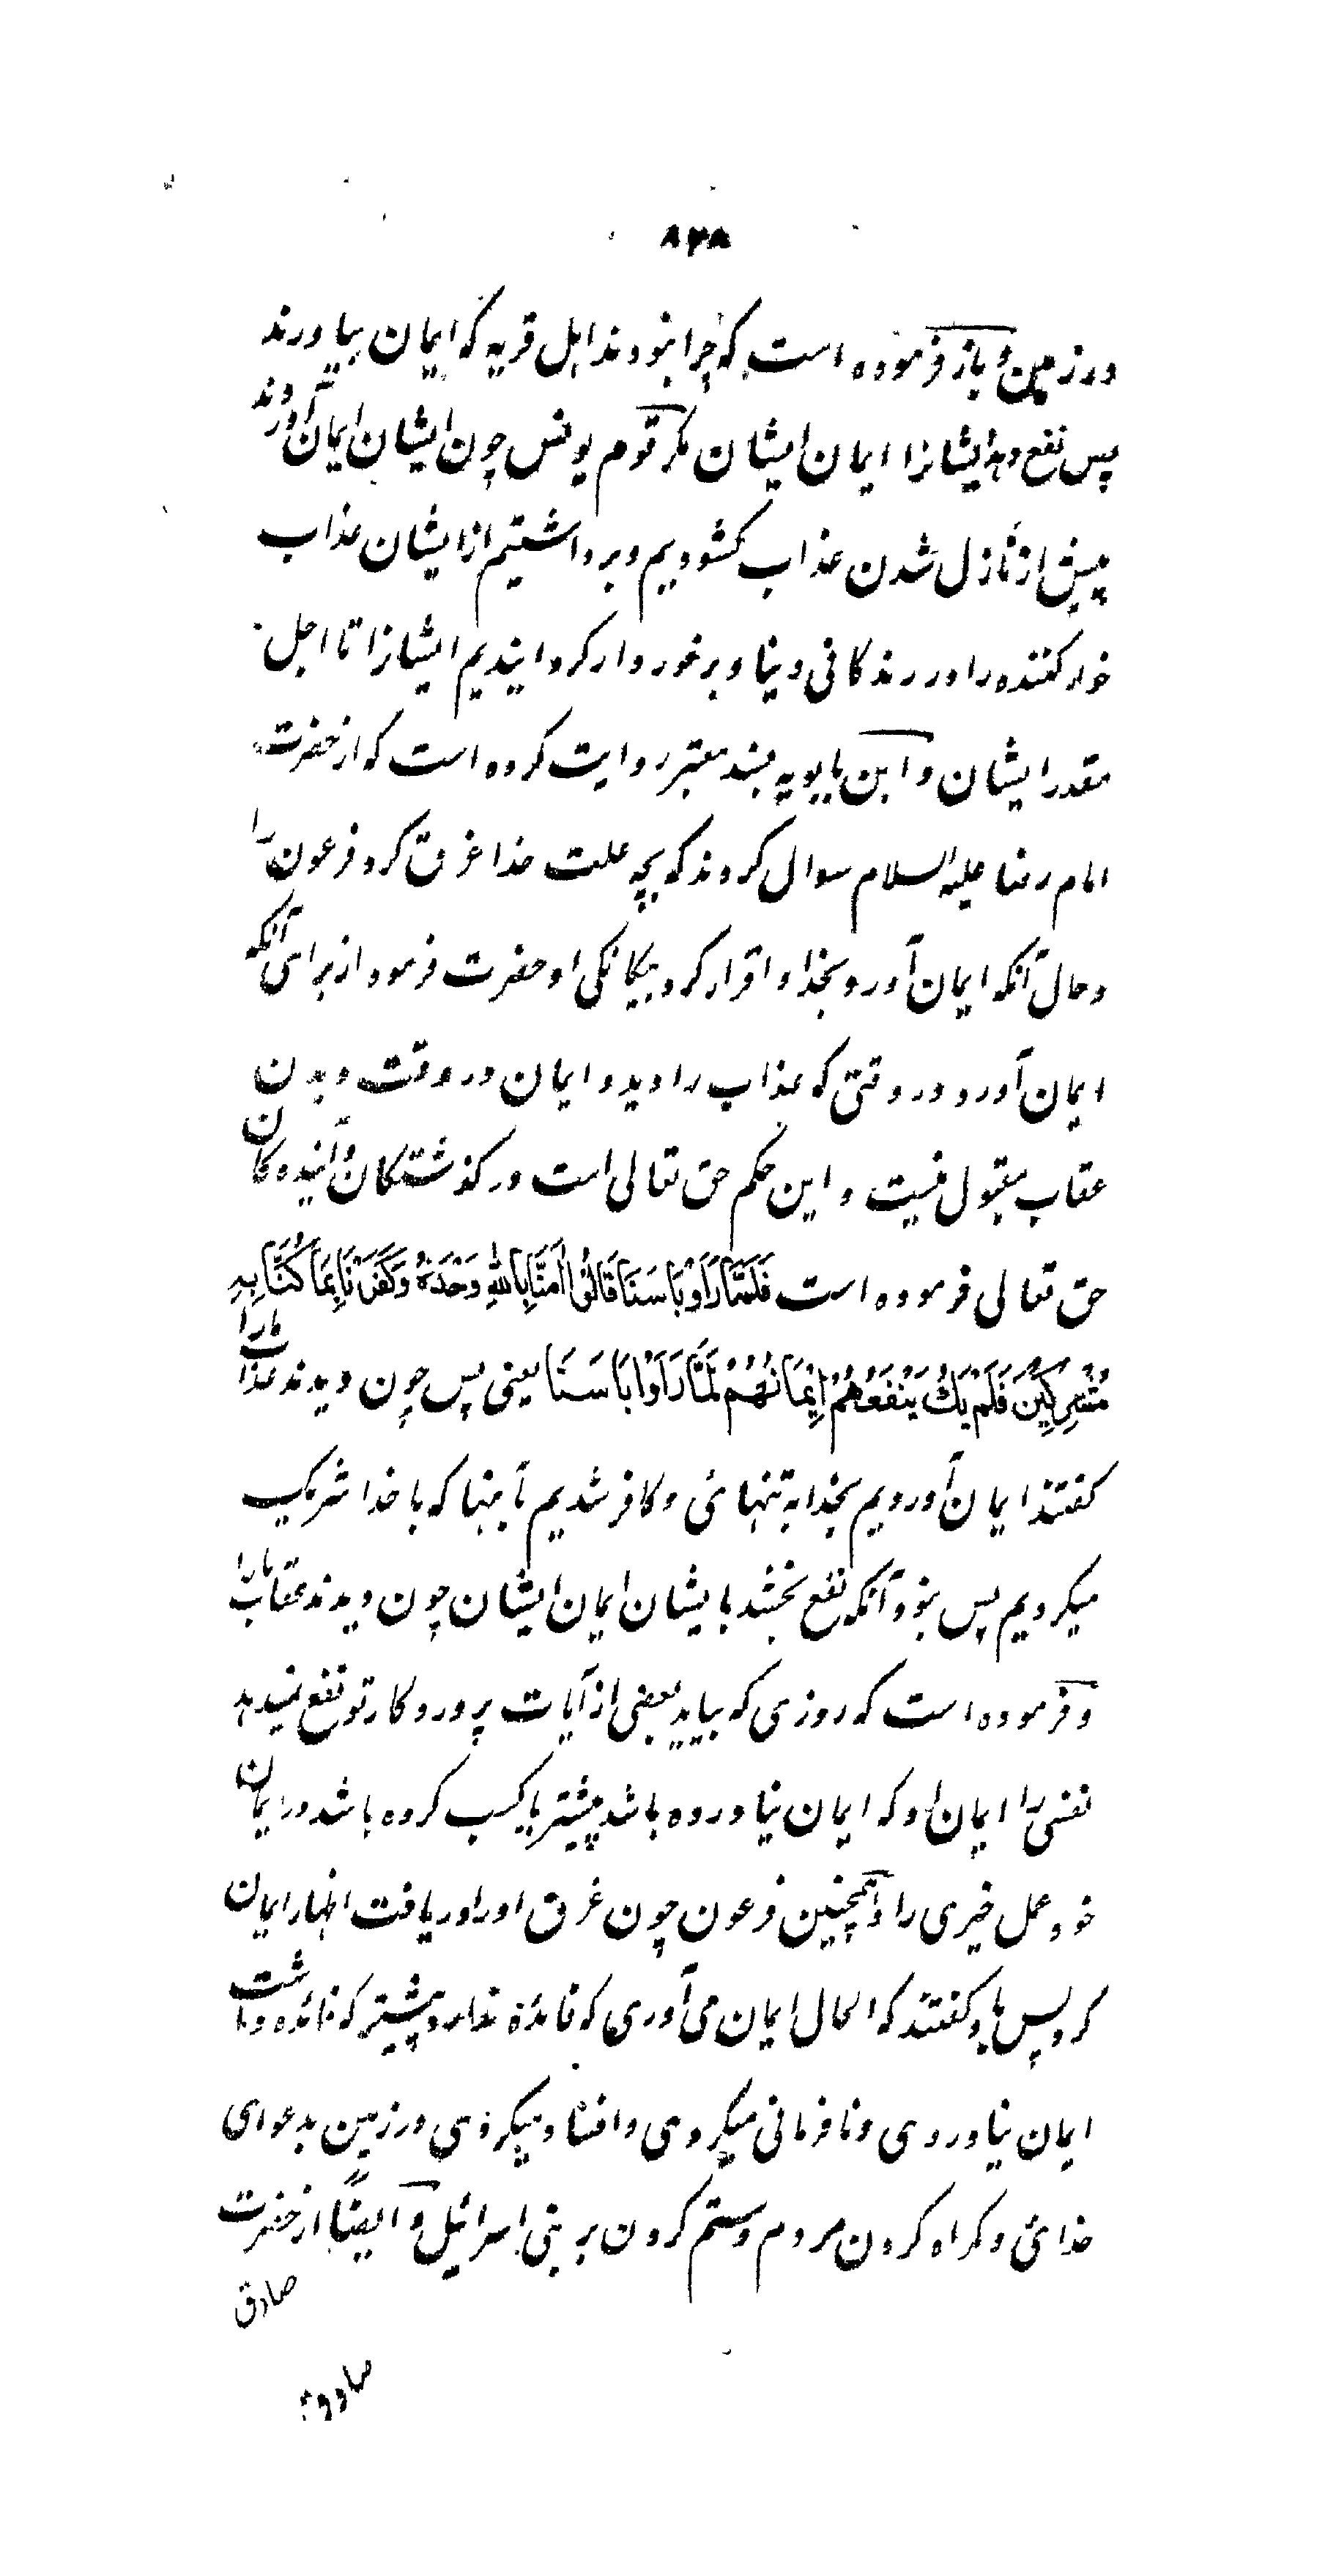 ۸۳۸
در زمین و باز فرموده است که چرا نبودند اهل قریه که ایمان بیاورند
پس نفع دهد ایشانرا ایمان ایشان مکر قوم یونس چون ایشان ایمان آوردند
پیش از نازل شدن عذاب کشودیم و برداشتیم از ایشان عذاب
خوار کننده را در زندکانی دنیا و برخوردار کردانیدیم ایشانرا تا اجل
مقدر ایشان و ابن بابویه بسند معتبر روایت کرده است که از حضرت
امام رضا علیه السلام سوال کردند که بچه علت خدا غرق کرد فرعون را
و حال آنکه ایمان آورد بخدا و اقرار کرد بیکانکی او حضرت فرمود از برای آنکه
ایمان آورد در وقتی که عذاب را دید و ایمان در وقت دیدن
عقاب مقبول نیست و این حکم حق تعالی است در کذشتکان و آیندهکان
حق تعالی فرموده است فَلَمَّا رَاَوْ بَاسَنَا قَالُوْا اٰمَنَّا بِاللّٰهِ وَحْدَهُ وَكَفَرْنَا بِمَا كُنَّا بِهِ
مُشْرِكِيْنَ فَلَمْ يَكُ يَنْفَعُهُمْ اِيْمَانُهُمْ لَمَّا رَاَوْا بَاسَنَا یعنی پس چون دیدند عذاب مارا
کفتند ایمان آوردیم بخدا به تنهائی و کافر شدیم بآنها که با خدا شریک
میکردیم پس نبود آنکه نفع بخشد بایشان ایمان ایشان چون دیدند عقاب مارا
و فرموده است که روزی که بیاید بعضی از آیات پروردکار تو نفع نمیدهد
نفسی را ایمان او که ایمان نیاورده باشد پیشتر یا کسب کرده باشد در ایمان
خود عمل خیری را و همچنین فرعون چون غرق او را دریافت اظهار ایمان
کرد پس باو کفتند که الحال ایمان می آوری که فائدة ندارد پیشتر که فائده داشت
ایمان نیاوردی و نافرمانی میکردی و افساد میکردی در زمین بدعوای
خدائی و کمراه کردن مردم و ستم کردن بر بنی اسرائیل و ایضاً از حضرت
صادق
صادق